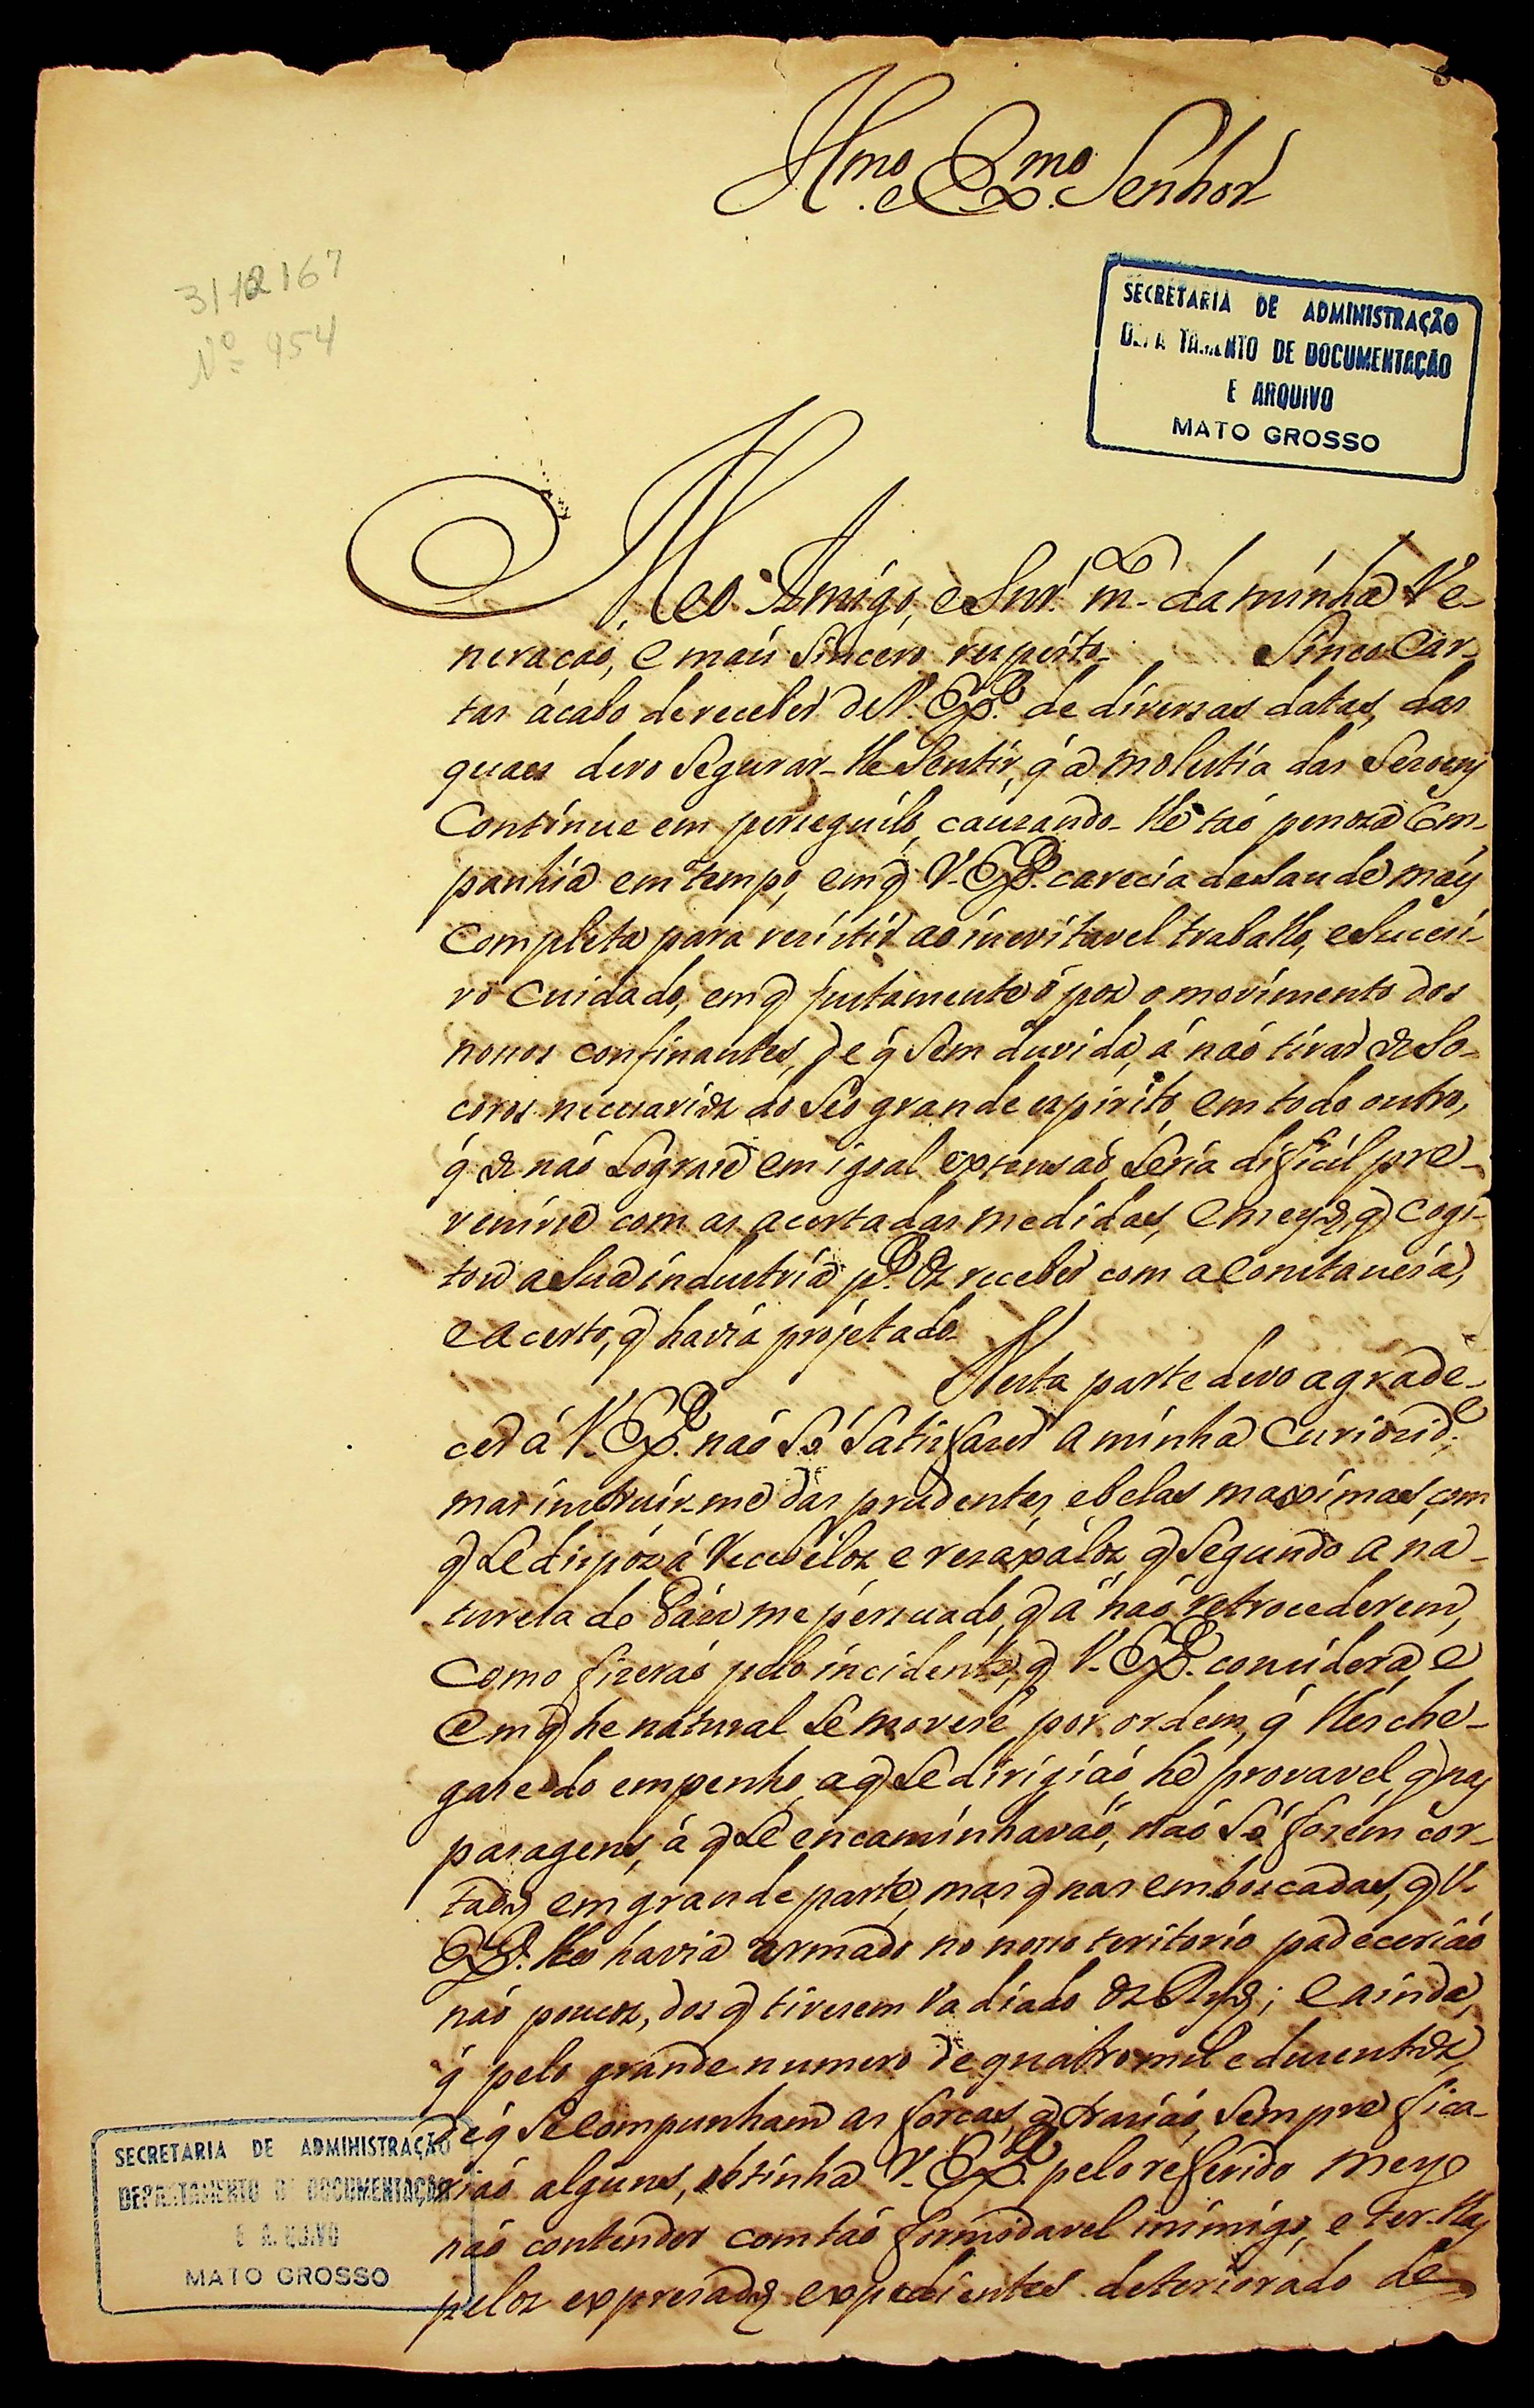 Illmo. e Exmo. Senhor
3/12/67
Nº 954
SECRETARIA DE ADMINISTRAÇÃO
DEPARTAMENTO DE DOCUMENTAÇÃO
E ARQUIVO
MATO GROSSO
Meo Amigo, e Snr. m. da minha Ve-
neraçaõ, e mais Sincero respeito. Sinco Car-
tas ácabo de receber de V. Exa. de diversas datas, das
quaes devo Segurar-lhe Sentir, q̃ a molestia das Sezoens
Continue em perseguilo, cauzando-lhe taõ penoza Com-
panhia em tempo, em q̃ V. Exa. carecia da Saude mais
Completa para rezistir ao inevitavel trabalho, e Sucesi-
vo Cuidado, em q̃ justamente o poz o movimento dos
nosos confinantes, de q̃ Sem duvida, á naõ tirar os So-
coros necesarios do Seo grande espirito, em todo outro,
q̃ os naõ Lograse em igoal extensaõ, Seria dificil pre-
venirse com as acertadas medidas, e meyos, q̃ Cogi-
tou a Sua industria pa. os receber com a Constancia,
e acerto, q̃ havia projetado.
Nesta parte devo agrade-
cer á V. Exa. naõ Só Satisfazer a minha Curiozide.
mas instruir-me das prudentes, e belas maximas, com
q̃ Se dispóz á recebelos, e rexaxálos, q̃ Segundo a na-
tureza do Páiz me persuado, q̃ á naõ retrocederem,
Como fizeraõ pelo incidente, q̃ V. Exa. considera, e
em q̃ he natural Se movese por ordem, q̃ lhes che-
gase do empenho, a q̃ Se dirigiaõ, he provavel, q̃ nas
paragens, á q̃ Se encaminhavaõ, naõ Só fosem cor-
tados em grande parte, mas q̃ nas emboscadas, q̃ V.
Exa. lhes havia armado no noso teritorio padeceriaõ
naõ poucos, dos q̃ tivesem vadiado os Ryos; e ainda,
q̃ pelo grande numero de quatro mil e duzentos,
de q̃ Se Compunham as forças, q̃ traziaõ, Sempre fica-
riaõ alguns, obtinha V. Exa. pelo referido meyo
naõ contender com taõ formidavel inimigo, e ter-lhas
pelos expresados expedientes deteriorado de
SECRETARIA DE ADMINISTRAÇÃO
DEPARTAMENTO DE DOCUMENTAÇÃO
E ARQUIVO
MATO GROSSO